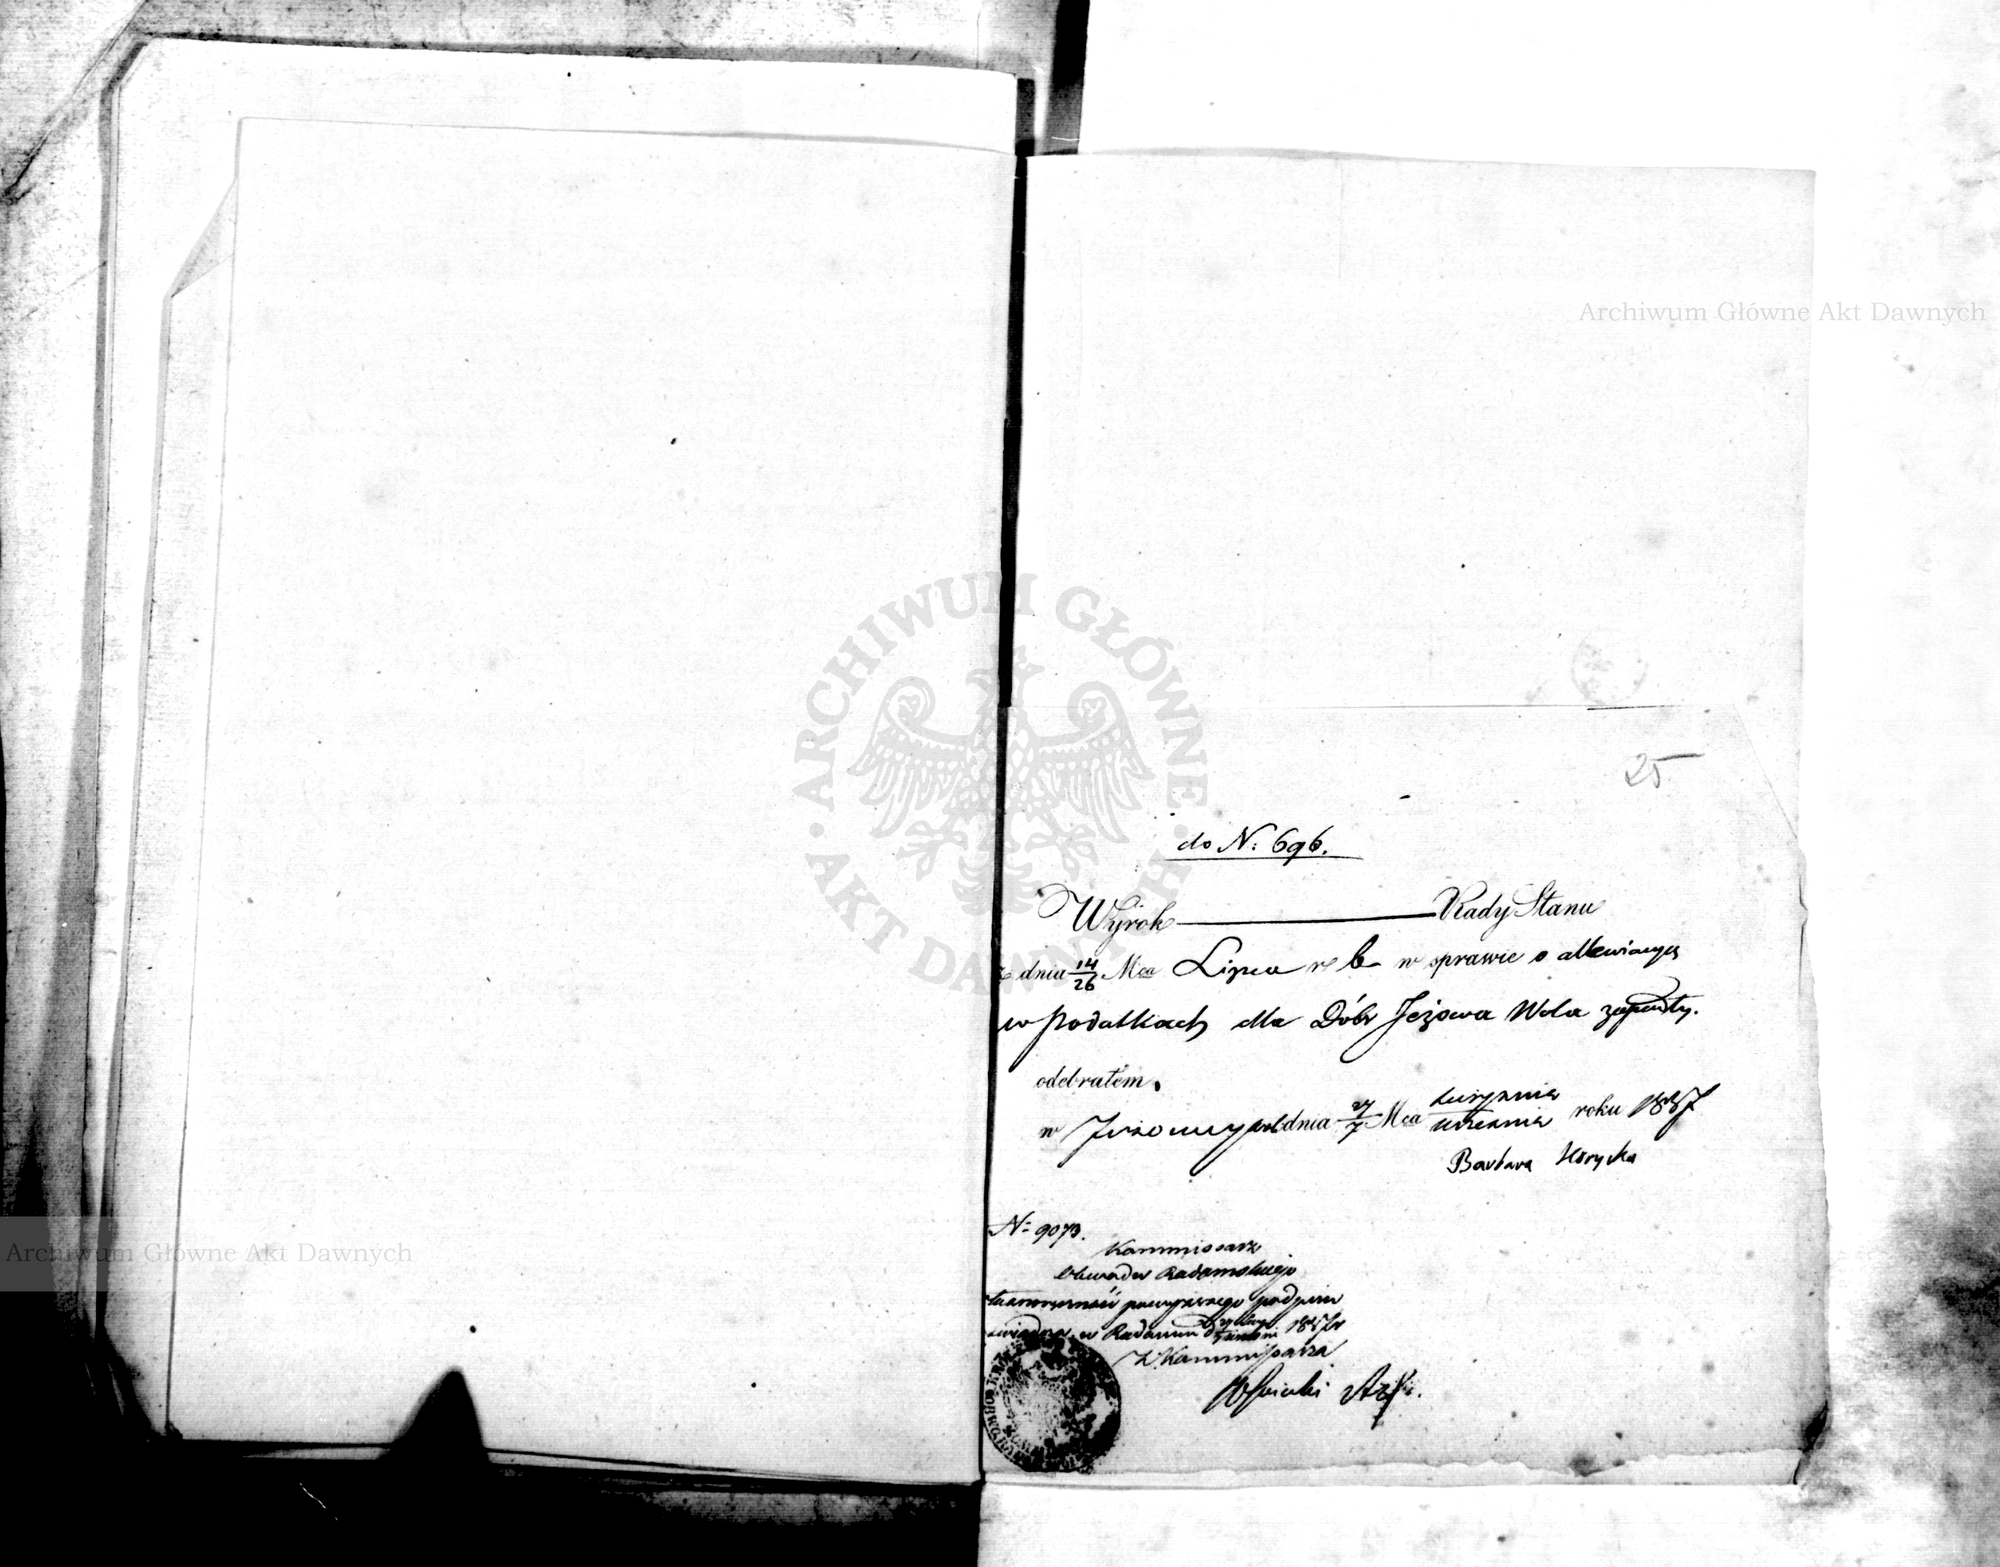 Archiwum Główne Akt Dawnych
ARCHIWUM GŁÓWNE AKT DAWNYCH
25
do N: 696.
Wyrok Rady Stanu
z dnia 14/26 Mca Lipca r b w sprawie o allewiacyą
w podatkach dla Dóbr Jeżowa Wola
odebrałem.
w dnia 27/7 Mca sierpnia/września roku 1837
Barbara
N= 9073.
Kommissarz
Obwodu Radomskiego
powyższego podpisu
w Radomiu 1837 r
Z. Kommissarza
Archiwum Główne Akt Dawnych